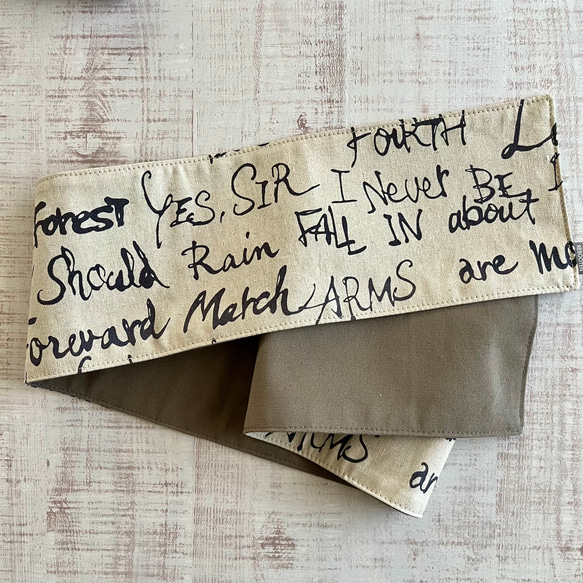 FOURTH
Forest YES, SIR I Never BE
Should Rain FALL IN about
Foreward March ARMS are mo
ARMS ar